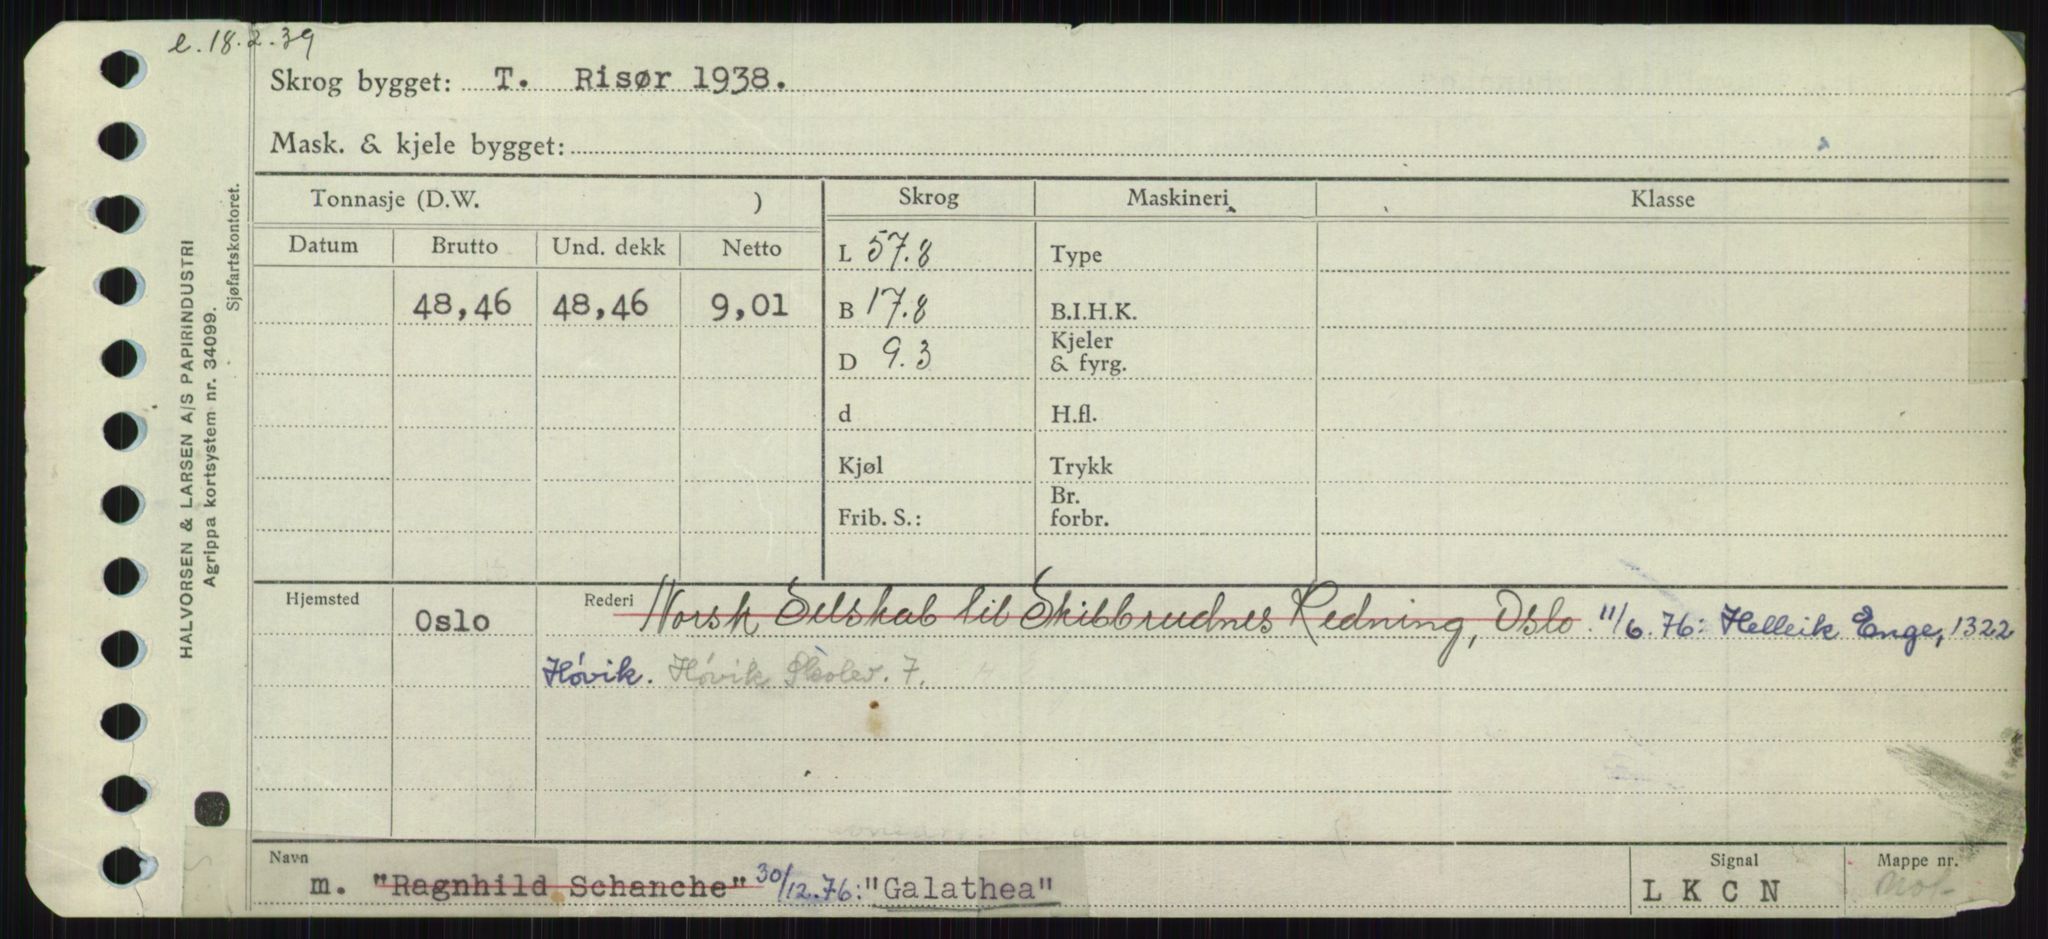 e. 18.2.39
Skrog bygget: T. Risør 1938.
Mask. & kjele bygget:
Tonnasje (D.W. )
Skrog
Maskineri
Klasse
Datum Brutto Und. dekk Netto
L 57.8
Type
48,46 48,46 9,01
B 17.8
B.I.H.K.
D 9.3
Kjeler & fyrg.
d
H.fl.
Kjøl
Trykk
Frib. S.:
Br. forbr.
Hjemsted Oslo Rederi Norsk Selskab til Skibbrudnes Redning, Oslo. 11/6.76: Helleik Enge, 1322
Høvik. Høvik Skolev. 7.
Navn
m. "Ragnhild Schanche" 30/12.76: "Galathea"
Signal
L K C N
Mappe nr.
HALVORSEN & LARSEN A/S PAPIRINDUSTRI
Agrippa kortsystem nr. 34099.
Sjøfartskontoret.